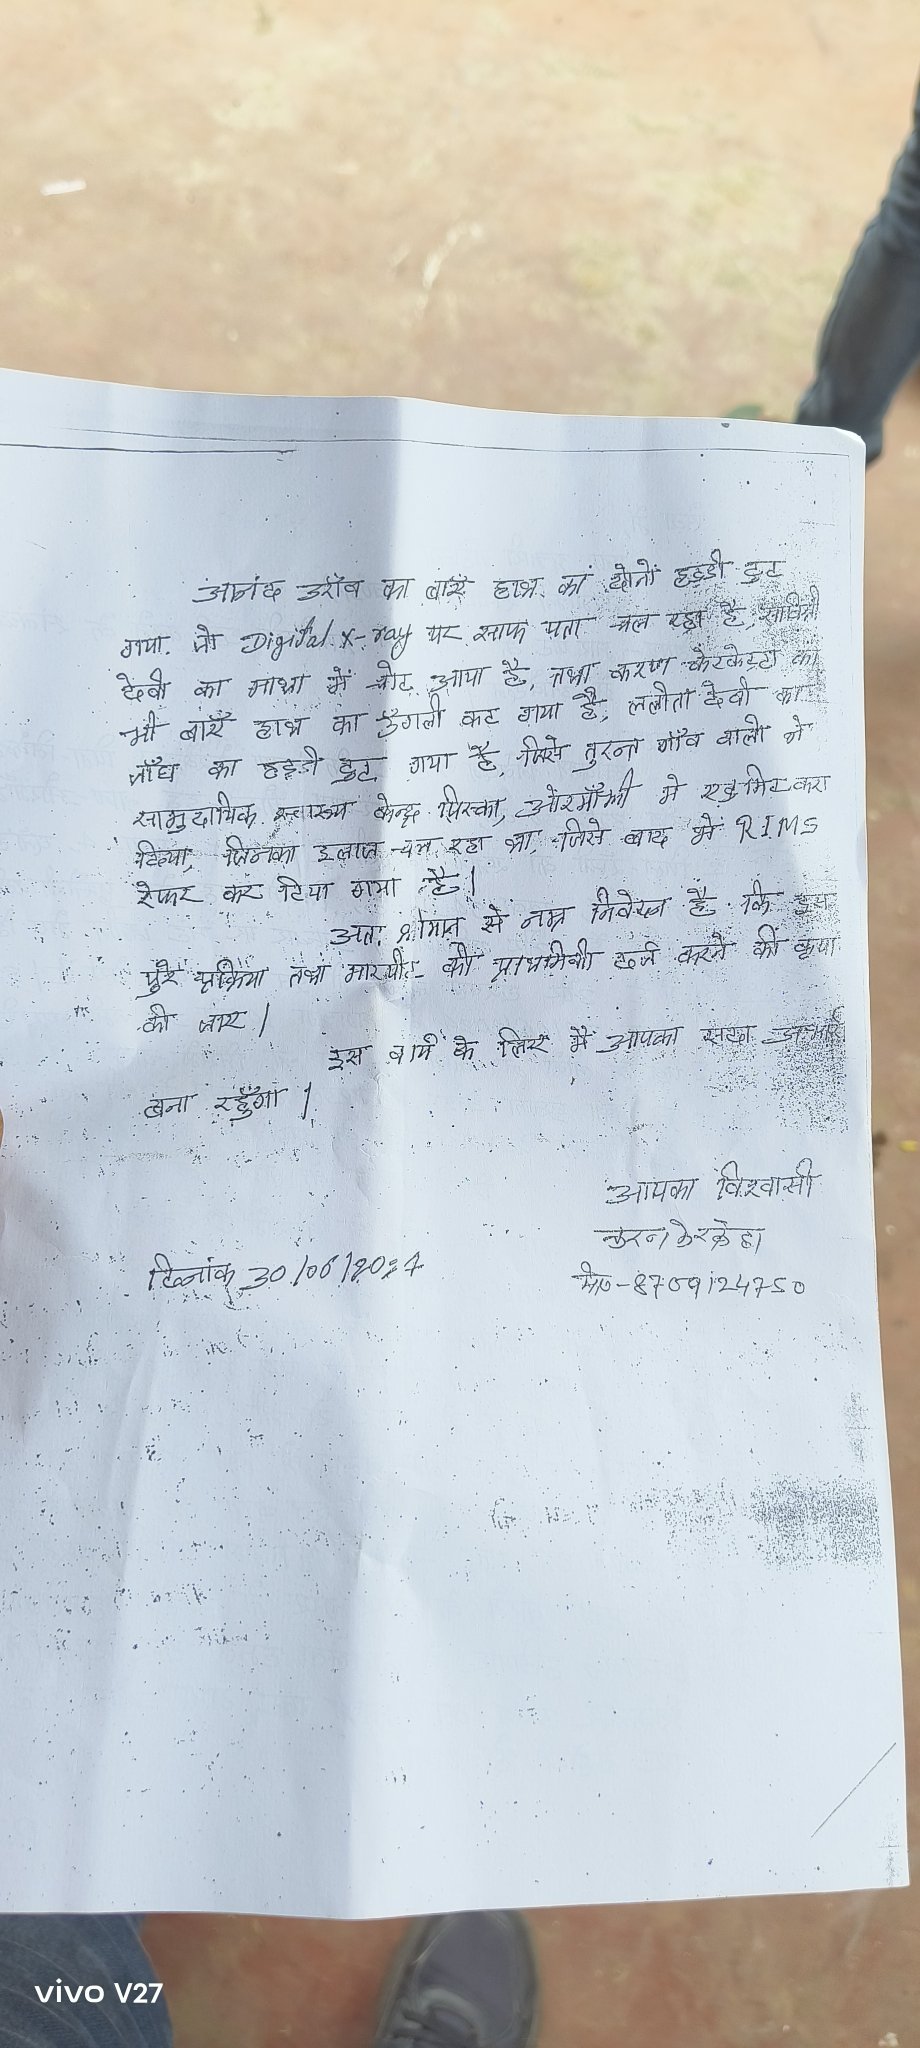 आनंद उराँव का बाएँ हाथ का दोनों हड्डी टुट
गया. जो Digital X-ray पर साफ पता चल रहा है, सावित्री
देवी का माथा में चोट आया है, तथा करण केरकेट्टा का
भी बाएँ हाथ का उँगली कट गया है, ललीता देवी का
जाँघ का हड्डी टुट गया है, जिसे तुरन्त गाँव वालो ने
सामुदायिक स्वास्थ्य केन्द्र सिरका, ओरमाँझी मे एडमिट करा
दिया, जिनका इलाज चल रहा था, जिसे बाद में RIMS
रेफर कर दिया गया है।
अतः श्रीमान से नम्र निवेदन है कि इस
पुरे प्रक्रिया तथा मारपीट की प्राथमिकी दर्ज करने की कृपा
की जाए।
इस कार्य के लिए मैं आपका सदा आभारी
बना रहुँगा।
आपका विश्वासी
करन केरकेट्टा
दिनांक 30/06/2024
मो०-8709124750
vivo V27